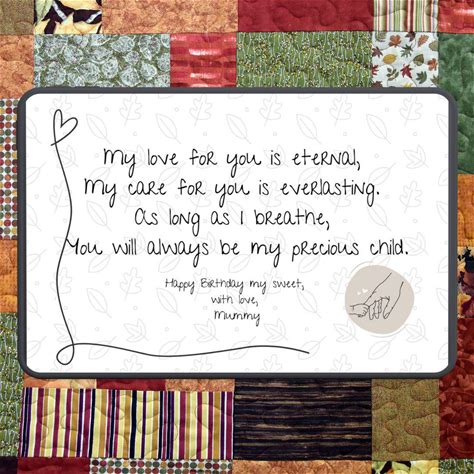 My love for you is eternal,
My care for you is everlasting.
As long as I breathe,
You will always be my precious child.
Happy Birthday my sweet,
with love,
Mummy